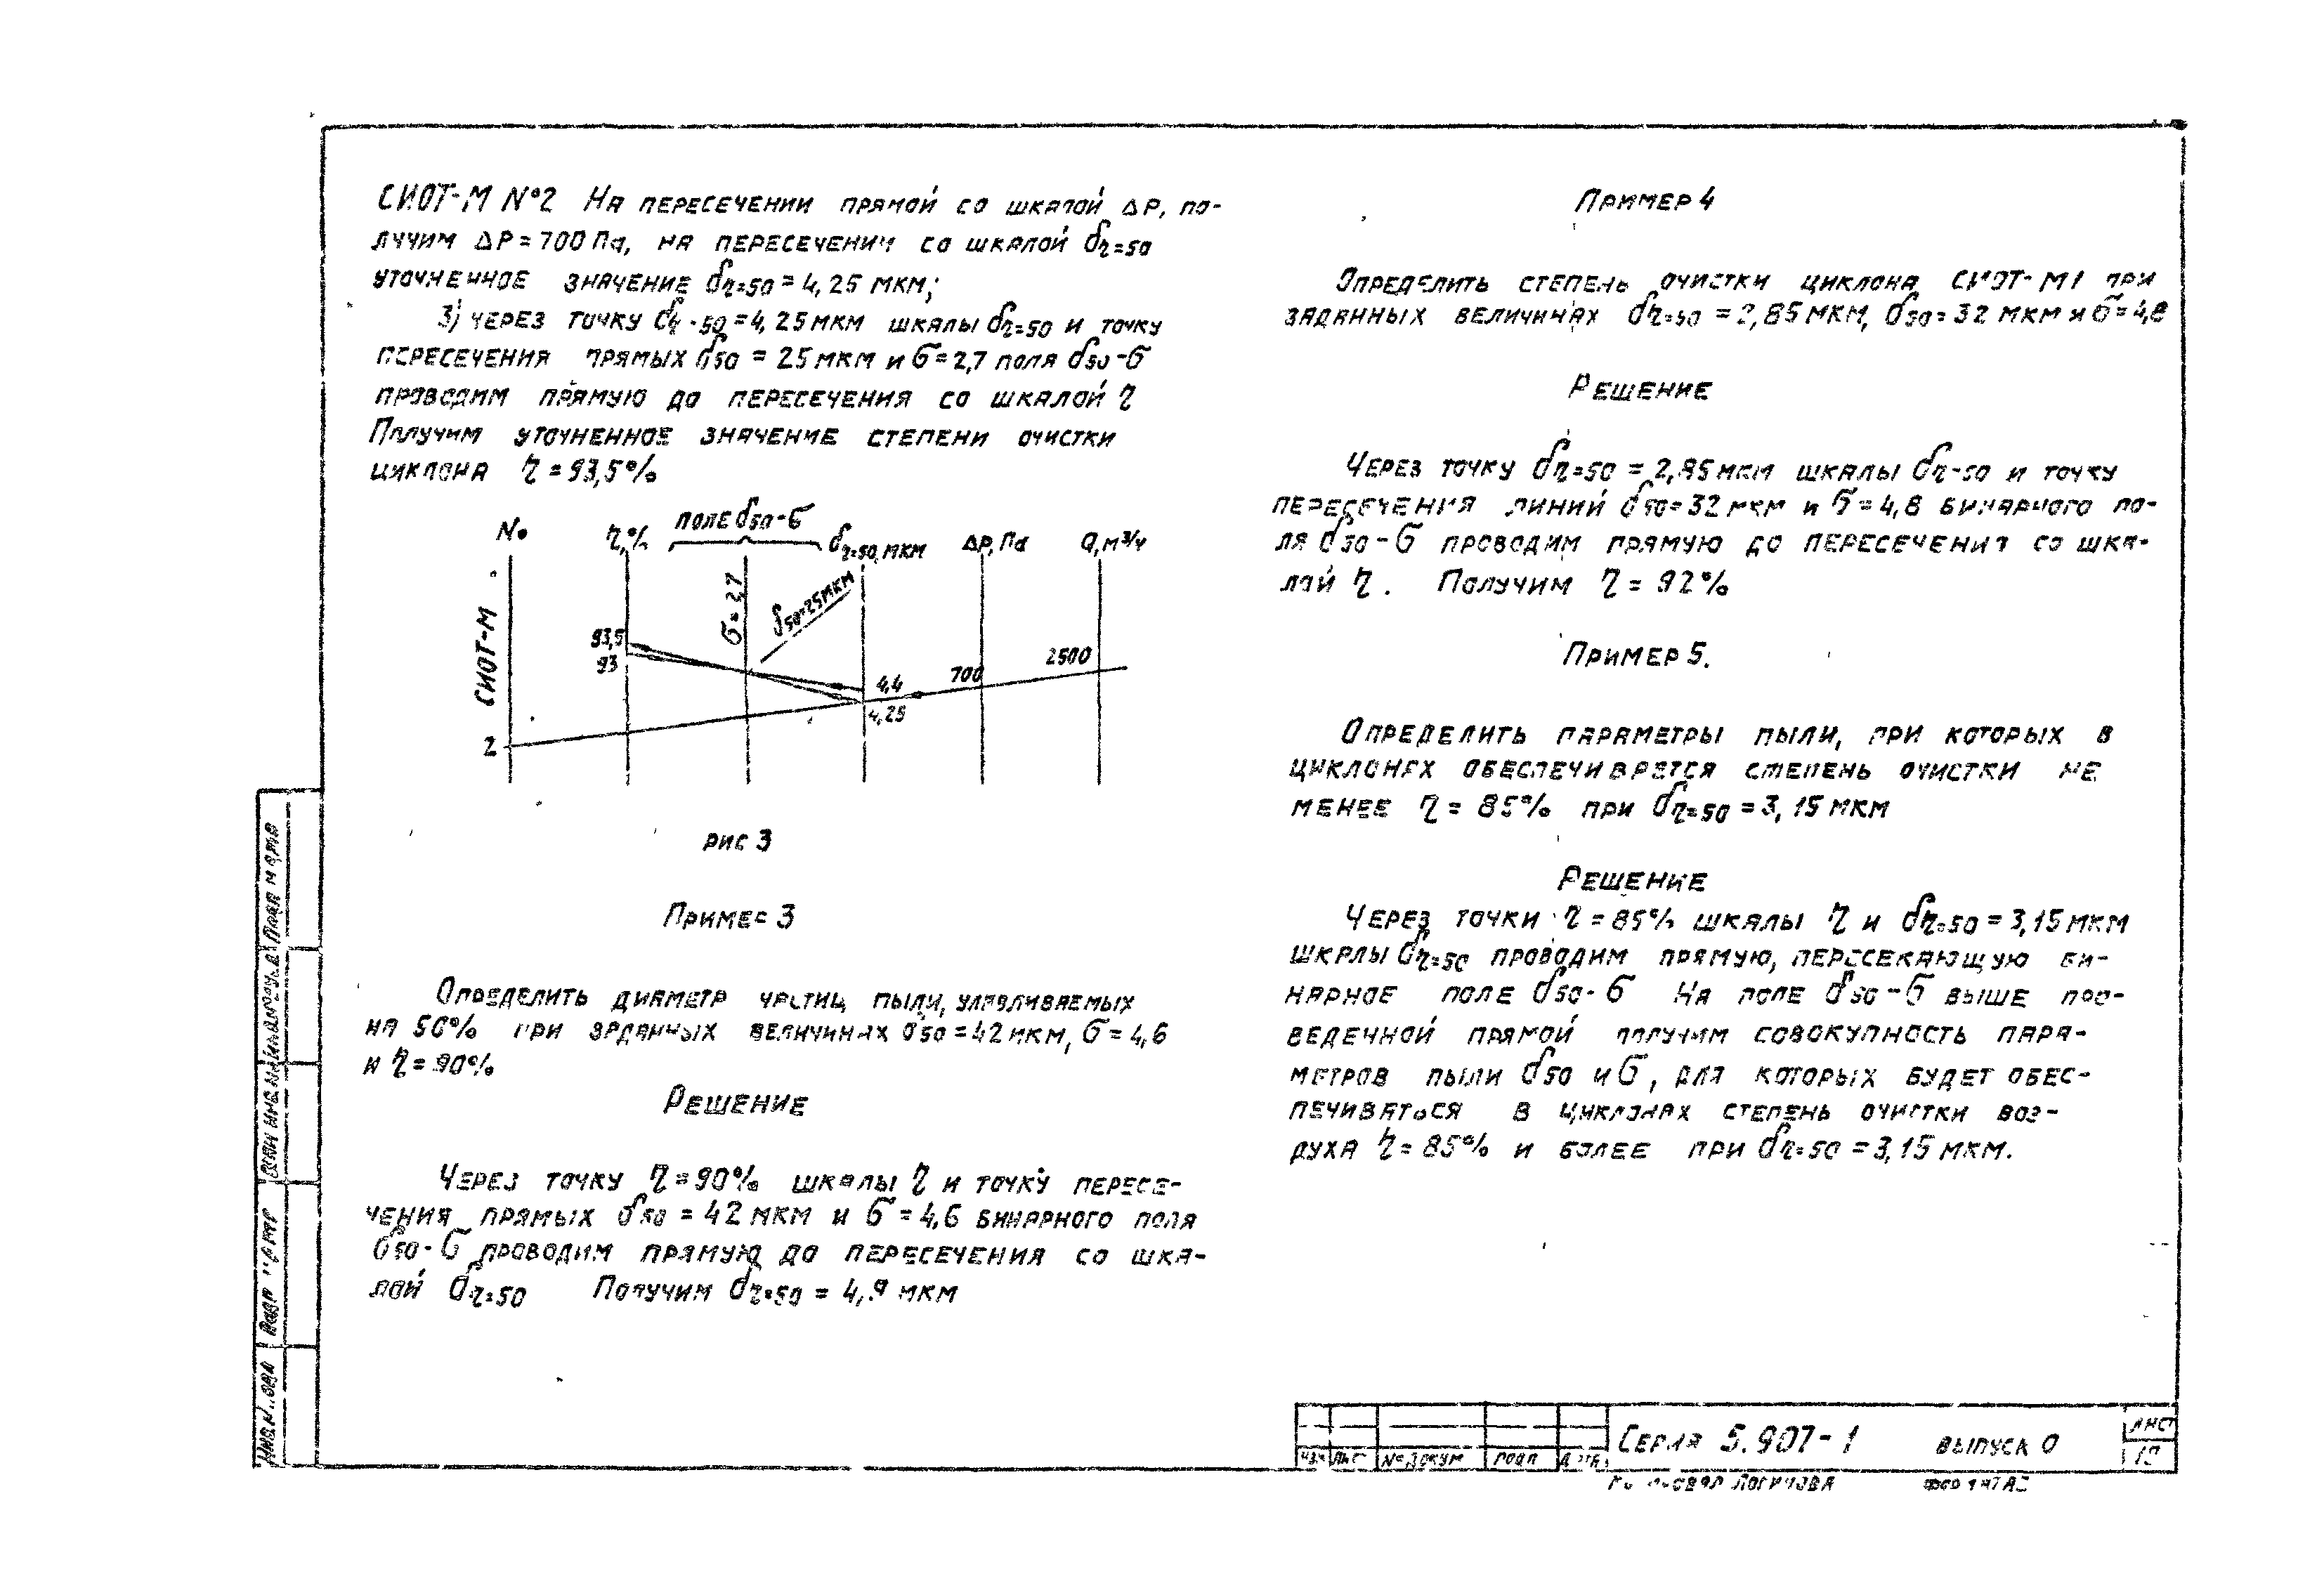 СИОТ-М №2 На пересечении прямой со шкалой ΔP, по-
лучим ΔP = 700 Па, на пересечении со шкалой δη=50
уточненное значение δη=50 = 4,25 мкм;
3) через точку δη=50 = 4,25 мкм шкалы δη=50 и точку
пересечения прямых δ50 = 25 мкм и σ = 2,7 поля δ50-σ
проводим прямую до пересечения со шкалой η
Получим уточненное значение степени очистки
циклона η = 93,5%
№ η,% поле δ50-σ δη=50, мкм ΔP, Па Q, м³/ч
СИОТ-М
σ = 2,7
δ50=25мкм
93,5
93
2500
700
4,4
4,25
2
рис 3
Пример 3
Определить диаметр частиц пыли, улавливаемых
на 50% при заданных величинах δ50 = 42 мкм, σ = 4,6
и η = 90%
Решение
Через точку η = 90% шкалы η и точку пересе-
чения прямых δ50 = 42 мкм и σ = 4,6 бинарного поля
δ50-σ проводим прямую до пересечения со шка-
лой δη=50 Получим δη=50 = 4,9 мкм
Пример 4
Определить степень очистки циклона СИОТ-М1 при
заданных величинах δη=50 = 2,85 мкм, δ50 = 32 мкм и σ = 4,8
Решение
Через точку δη=50 = 2,85 мкм шкалы δη=50 и точку
пересечения линий δ50 = 32 мкм и σ = 4,8 бинарного по-
ля δ50-σ проводим прямую до пересечения со шка-
лой η. Получим η = 92%
Пример 5.
Определить параметры пыли, при которых в
циклонах обеспечивается степень очистки не
менее η = 85% при δη=50 = 3,15 мкм
Решение
Через точки η = 85% шкалы η и δη=50 = 3,15 мкм
шкалы δη=50 проводим прямую, пересекающую би-
нарное поле δ50-σ На поле δ50-σ выше про-
веденной прямой получим совокупность пара-
метров пыли δ50 и σ, для которых будет обес-
печиваться в циклонах степень очистки воз-
духа η = 85% и более при δη=50 = 3,15 мкм.
Подп и дата
Серия 5.907-1 выпуск 0
Лист
№ докум